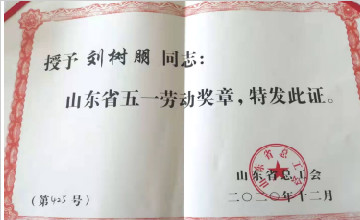 授予刘树朋同志：
山东省五一劳动奖章，特发此证。
山东省总工会
二〇二〇年十二月
（第425号）